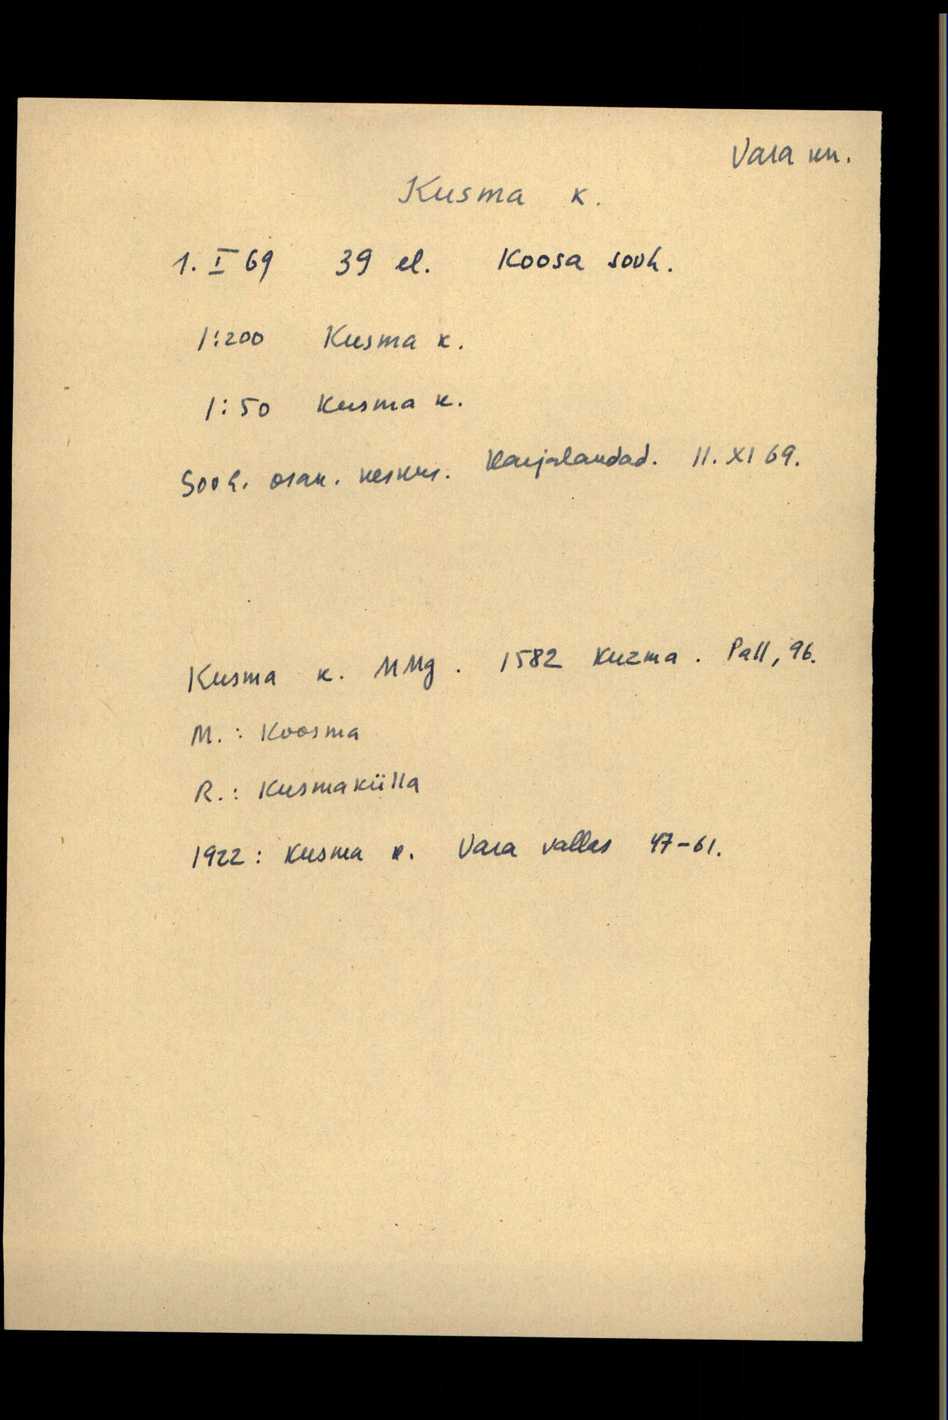 Vara kn.
Kusma k.
1. I 69 39 el. Koosa sovh.
1:200 Kusma k.
1:50 Kusma k.
Sovh. osak. keskus. Karjalaudad. 11. XI 69.
Kusma k. MMg. 1582 Kuzma. Pall, 96.
M.: Koosma
R.: Kusmakülla
1922: Kusma k. Vara vallas 47-61.